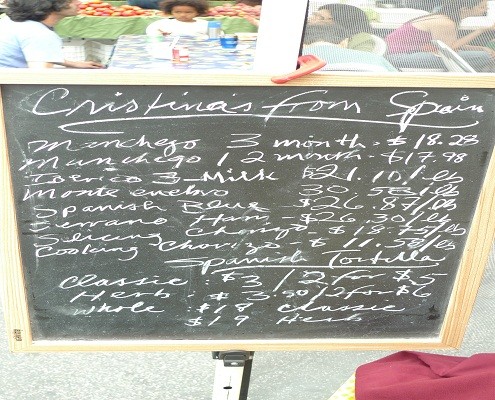 Cristina's from Spain
Manchego 3 month - $18.28
Manchego 12 month - $17.98
Iberico 3 Milk $21.10/lb
Monte enebro 30.50/lb
Spanish Blue - $26.87/lb
Serrano Ham - $26.30/lb
Slicing Chorizo - $18.75/lb
Cooking Chorizo - $11.58/lb
Spanish Tortilla
Classic $3 / 2 for $5
Herb $3.50 / 2 for $6
Whole $18 Classic
$19 Herb